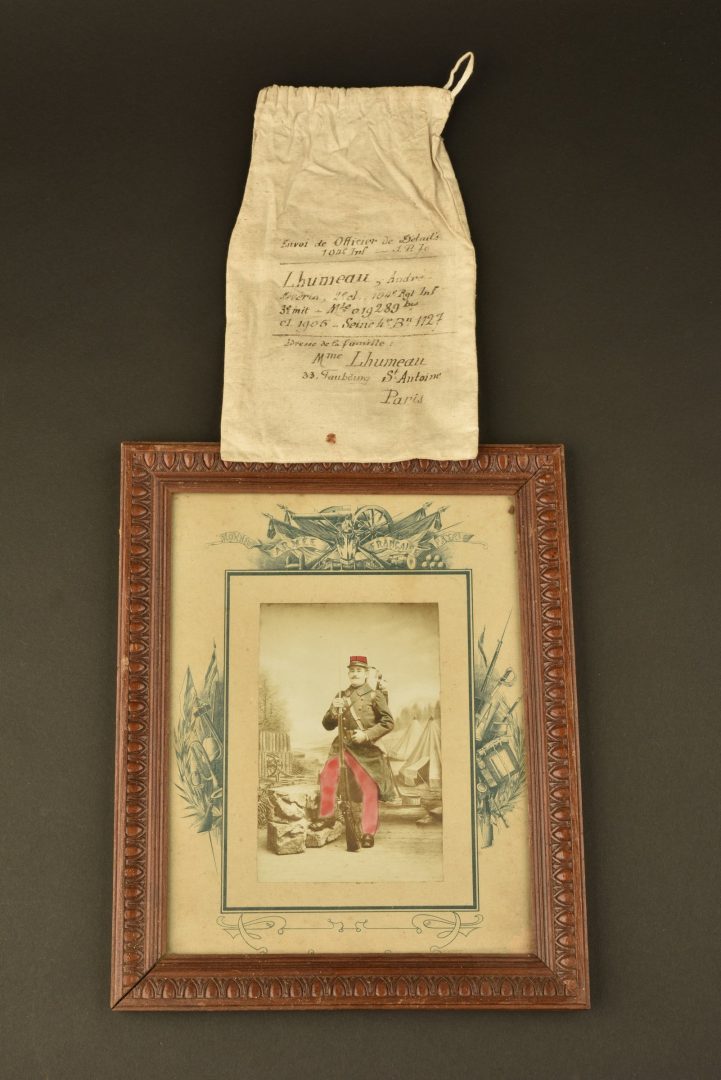 Envoi de Officier de Détails
104e Inf
Lhumeau, André
2e cl. 104e Rgt Inf
3e mit - Mle 019289 bis
cl. 1906 - Seine 4e Bau 1127
Adresse de la famille :
Mme Lhumeau
33, Faubourg St Antoine
Paris
HONNEUR ARMÉE FRANÇAISE PATRIE